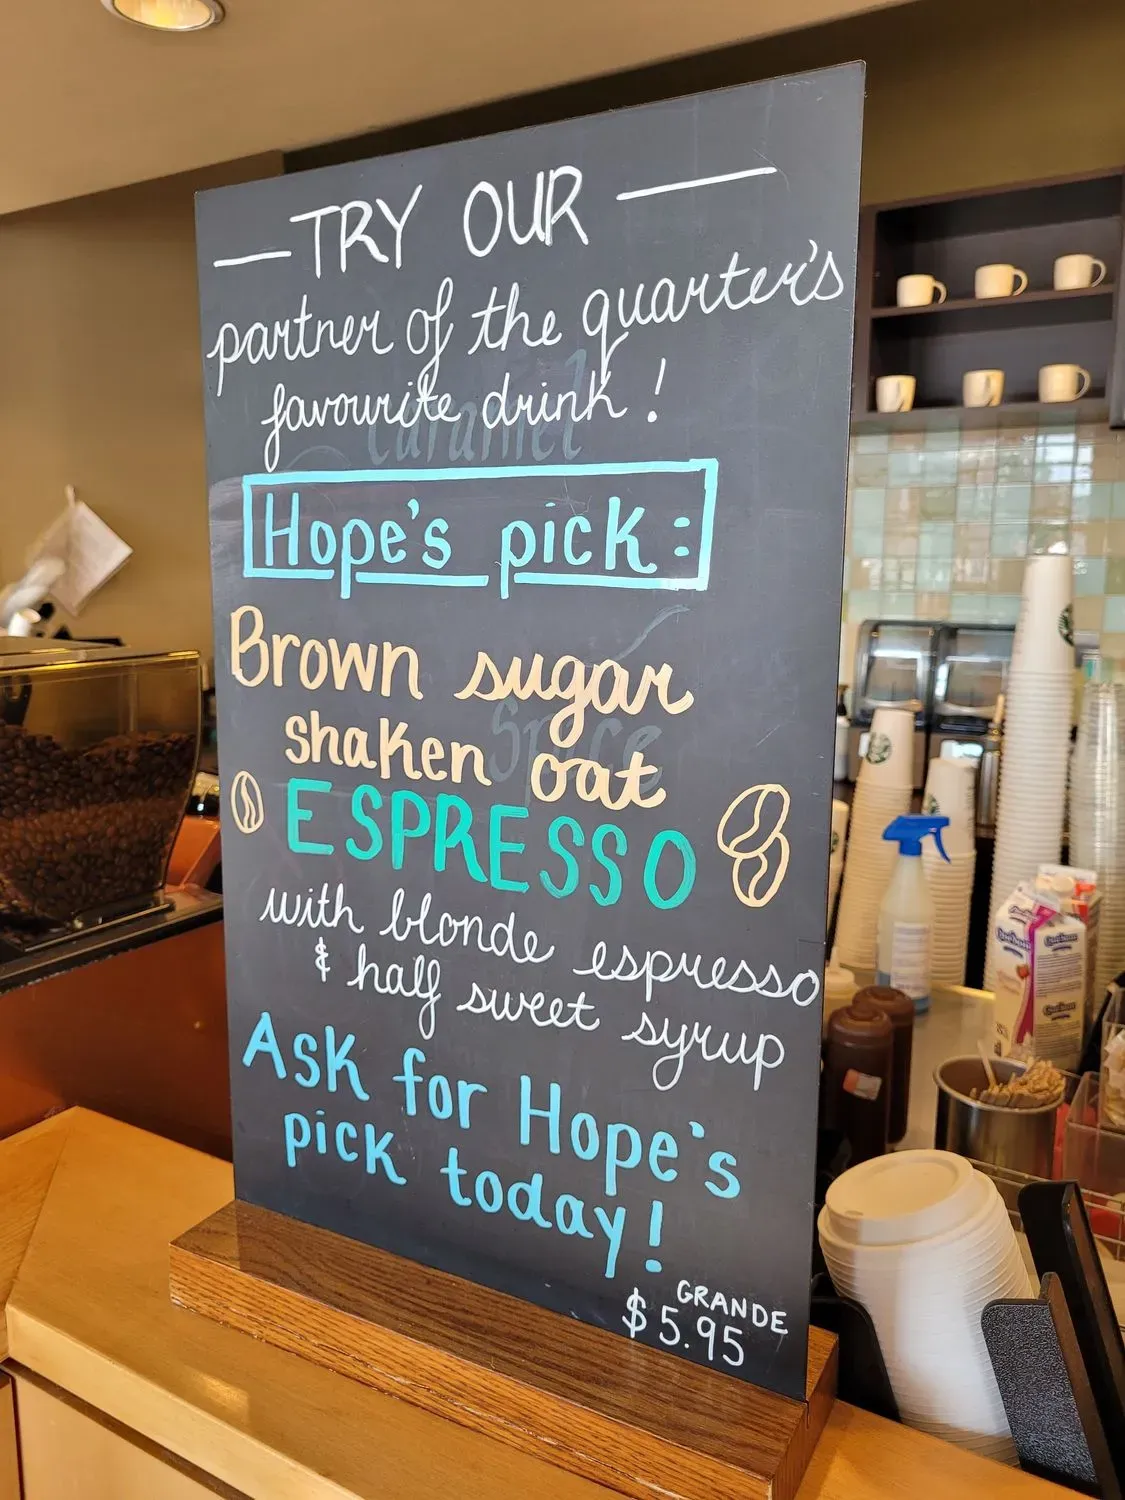 TRY OUR
partner of the quarter's
favourite drink!
Caramel
Hope's pick:
Brown sugar
Spice
shaken oat
ESPRESSO
with blonde espresso
& half sweet syrup
Ask for Hope's
pick today!
GRANDE
$5.95